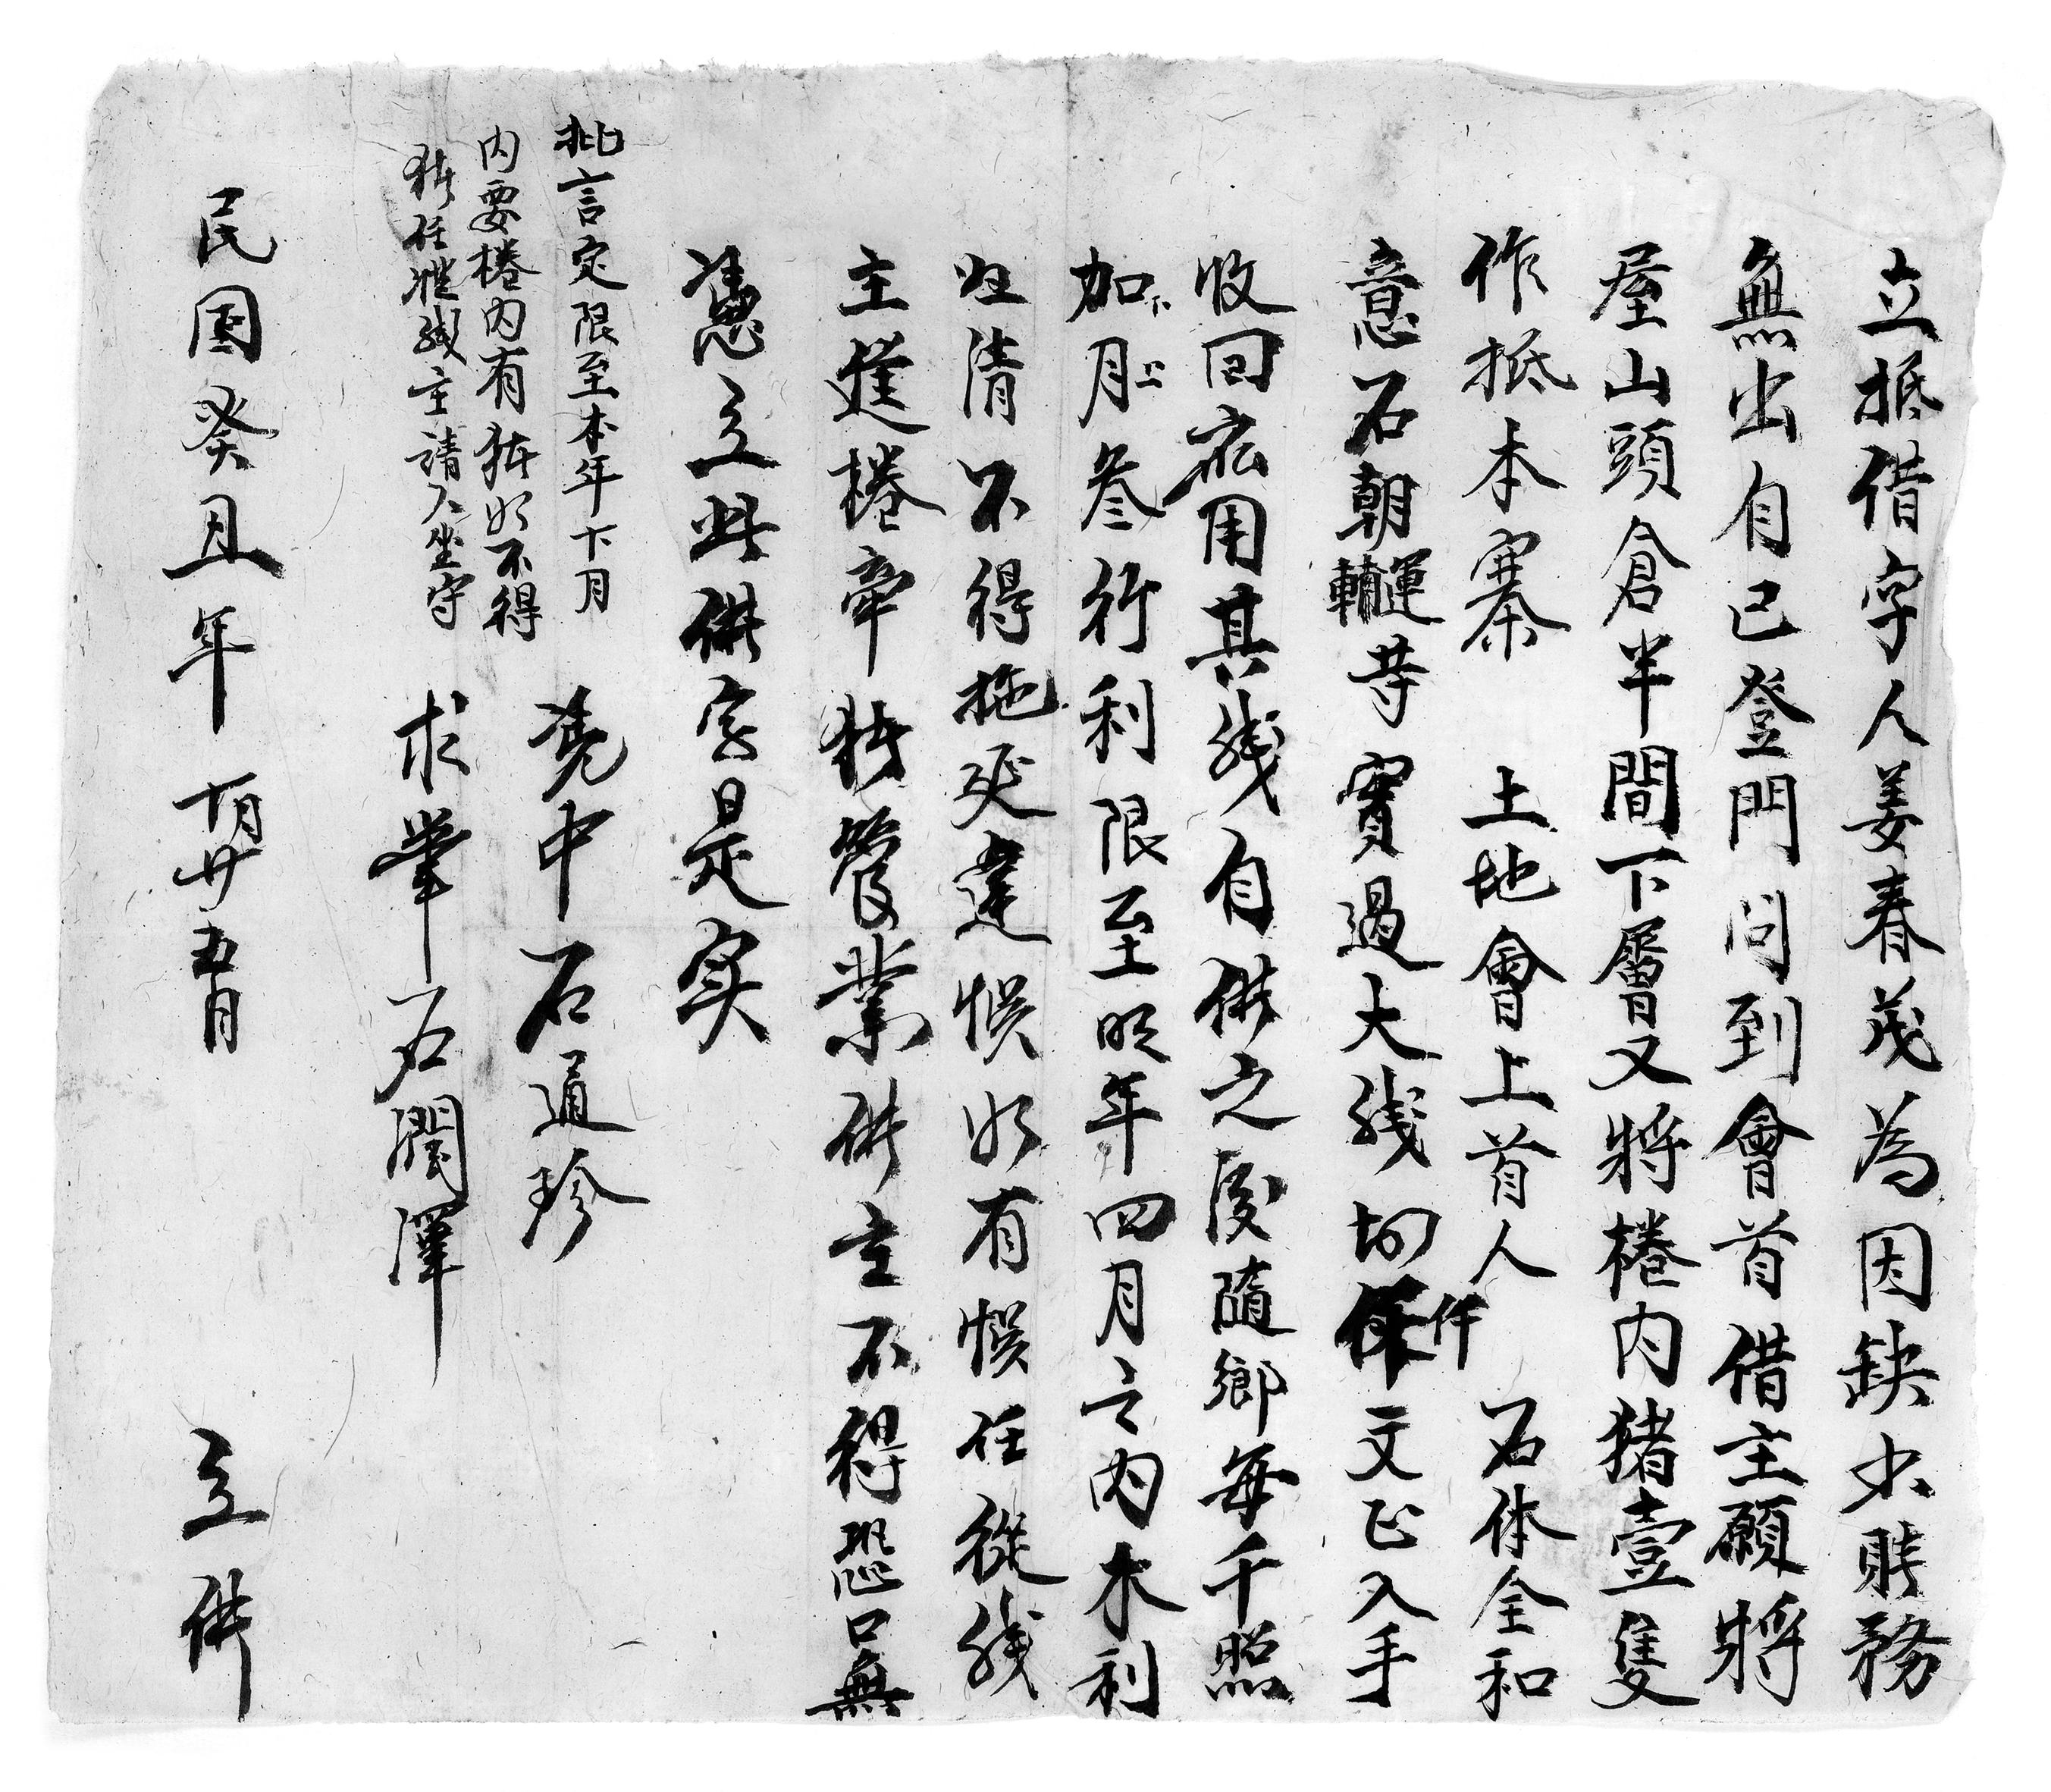 立抵借字人姜春茂為因缺少賬務
無出自己登門问到會首借主願將
屋山頭倉半間下層又將棬内猪壹隻
作抵本寨　土地會上首人　石体全和
意石朝輔運等實過大錢切仟文正入手
收回應用其錢自借之後隨鄉毎千照
加月叁行利限至明年四月之内本利
归清不得拖延違悞如有悞任從錢
主進棬牵猪管業借主不得恐口無
憑立此借字是实
批言定限至本年十月
内要棬内有猪如不得
猪任憑錢主請人坐守
凴中石通珍
求筆石潤澤
民囯癸丑年 十月廿五日　立借